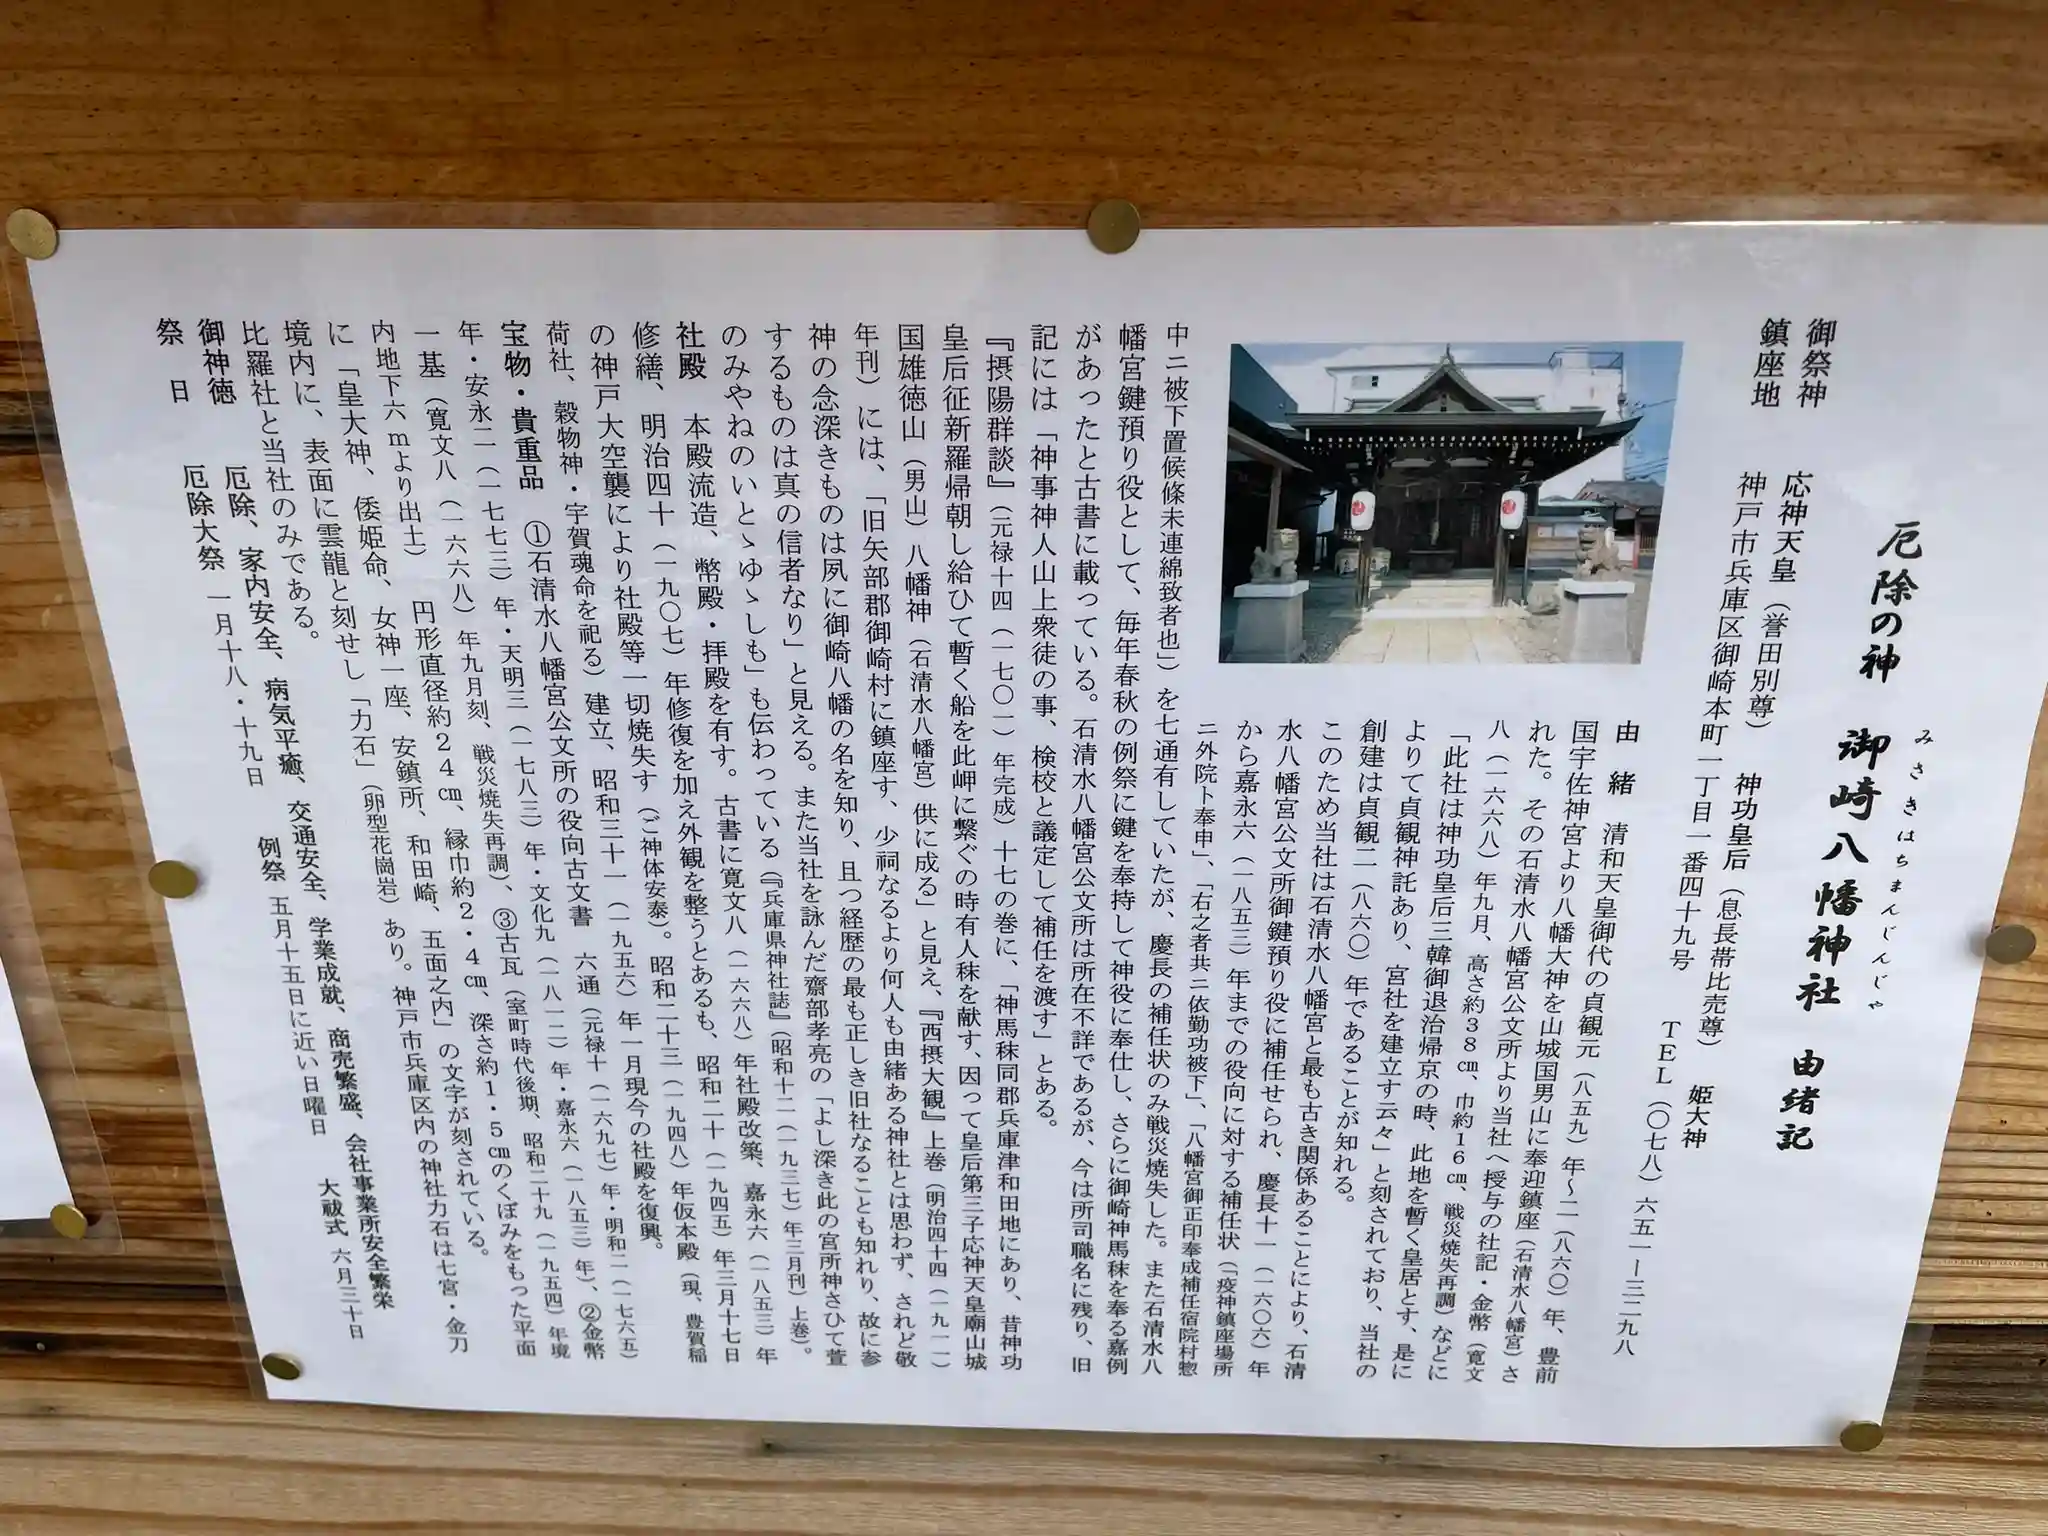 厄除の神　御崎八幡神社　由緒記
みさきはちまんじんじゃ
御祭神　応神天皇（誉田別尊）　神功皇后（息長帯比売尊）　姫大神
鎮座地　神戸市兵庫区御崎本町一丁目一番四十九号　ＴＥＬ（〇七八）六五一ー三二九八
由　緒　清和天皇御代の貞観元（八五九）年～二（八六〇）年、豊前
国宇佐神宮より八幡大神を山城国男山に奉迎鎮座（石清水八幡宮）さ
れた。その石清水八幡宮公文所より当社へ授与の社記・金幣（寛文
八（一六六八）年九月、高さ約３８㎝、巾約１６㎝、戦災焼失再調）などに
「此社は神功皇后三韓御退治帰京の時、此地を暫く皇居とす、是に
よりて貞観神託あり、宮社を建立す云々」と刻されており、当社の
創建は貞観二（八六〇）年であることが知れる。
このため当社は石清水八幡宮と最も古き関係あることにより、石清
水八幡宮公文所御鍵預り役に補任せられ、慶長十一（一六〇六）年
から嘉永六（一八五三）年までの役向に対する補任状（「疫神鎮座場所
ニ外院ト奉申」、「右之者共ニ依勤功被下」、「八幡宮御正印奉成補任宿院村惣
中ニ被下置候條未連綿致者也」）を七通有していたが、慶長の補任状のみ戦災焼失した。また石清水八
幡宮鍵預り役として、毎年春秋の例祭に鍵を奉持して神役に奉仕し、さらに御崎神馬秣を奉る嘉例
があったと古書に載っている。石清水八幡宮公文所は所在不詳であるが、今は所司職名に残り、旧
記には「神事神人山上衆徒の事、検校と議定して補任を渡す」とある。
『摂陽群談』（元禄十四（一七〇一）年完成）十七の巻に、「神馬秣同郡兵庫津和田地にあり、昔神功
皇后征新羅帰朝し給ひて暫く船を此岬に繋ぐの時有人秣を献す、因って皇后第三子応神天皇廟山城
国雄徳山（男山）八幡神（石清水八幡宮）供に成る」と見え、『西摂大観』上巻（明治四十四（一九一一）
年刊）には、「旧矢部郡御崎村に鎮座す、少祠なるより何人も由緒ある神社とは思わず、されど敬
神の念深きものは夙に御崎八幡の名を知り、且つ経歴の最も正しき旧社なることも知れり、故に参
するものは真の信者なり」と見える。また当社を詠んだ齋部孝亮の「よし深き此の宮所神さひて萱
のみやねのいとゝゆゝしも」も伝わっている（『兵庫県神社誌』（昭和十二（一九三七）年三月刊）上巻）。
社殿　本殿流造、幣殿・拝殿を有す。古書に寛文八（一六六八）年社殿改築、嘉永六（一八五三）年
修繕、明治四十（一九〇七）年修復を加え外観を整うとあるも、昭和二十（一九四五）年三月十七日
の神戸大空襲により社殿等一切焼失す（ご神体安泰）。昭和二十三（一九四八）年仮本殿（現、豊賀稲
荷社、穀物神・宇賀魂命を祀る）建立、昭和三十一（一九五六）年一月現今の社殿を復興。
宝物・貴重品　①石清水八幡宮公文所の役向古文書　六通（元禄十（一六九七）年・明和二（一七六五）
年・安永二（一七七三）年・天明三（一七八三）年・文化九（一八一二）年・嘉永六（一八五三）年）、②金幣
一基（寛文八（一六六八）年九月刻、戦災焼失再調）、③古瓦（室町時代後期、昭和二十九（一九五四）年境
内地下六ｍより出土）　円形直径約２４㎝、縁巾約２・４㎝、深さ約１・５㎝のくぼみをもった平面
に「皇大神、倭姫命、女神一座、安鎮所、和田崎、五面之内」の文字が刻されている。
境内に、表面に雲龍と刻せし「力石」（卵型花崗岩）あり。神戸市兵庫区内の神社力石は七宮・金刀
比羅社と当社のみである。
御神徳　厄除、家内安全、病気平癒、交通安全、学業成就、商売繁盛、会社事業所安全繁栄
祭　日　厄除大祭　一月十八・十九日　例祭　五月十五日に近い日曜日　大祓式　六月三十日